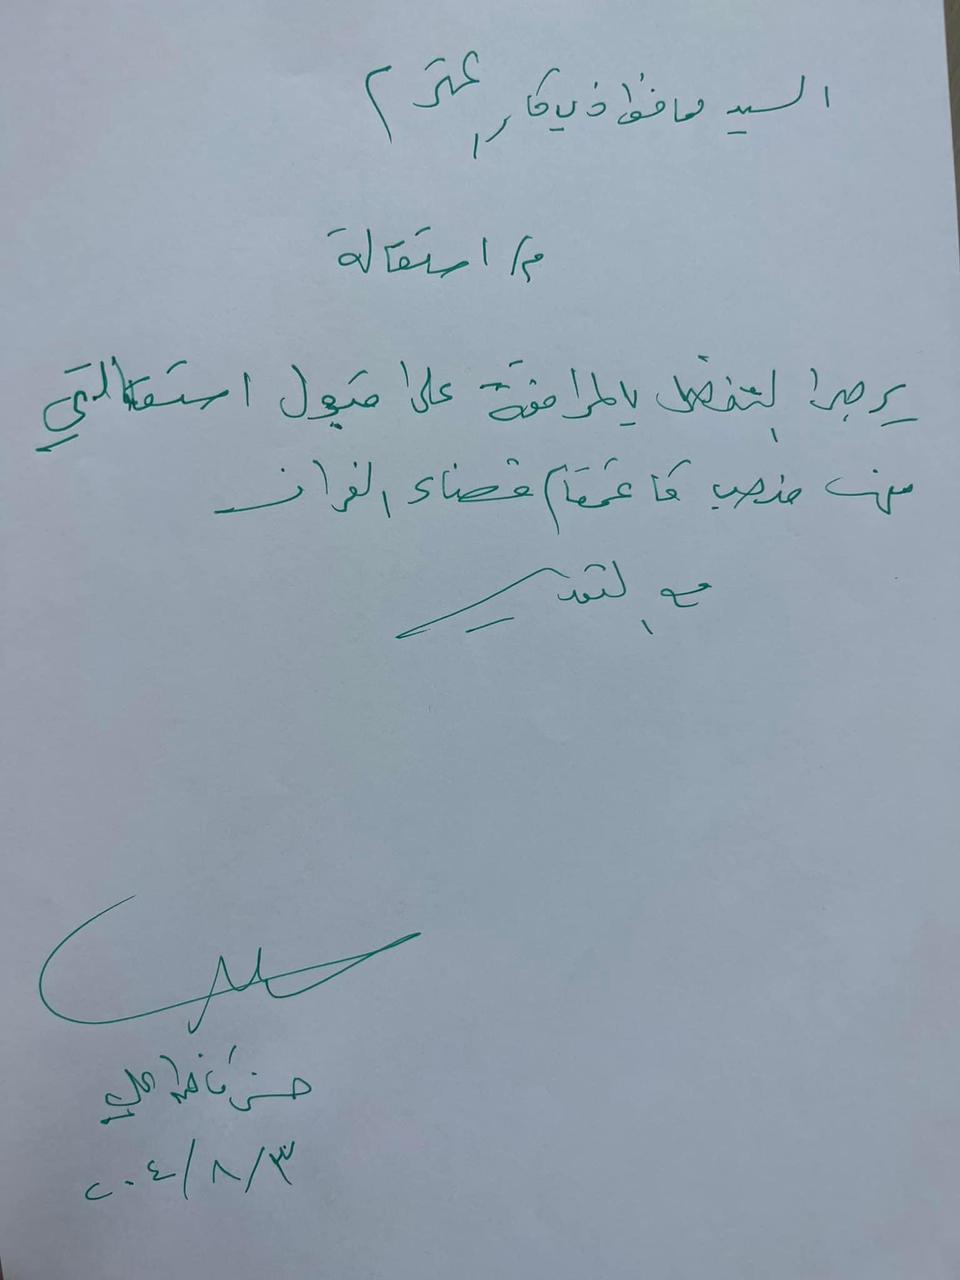 السيد محافظ ذي قار المحترم
م/ استقالة
يرجى التفضل بالموافقة على قبول استقالتي
من منصب قائممقام قضاء
مع التقدير
حسن كاظم علي
٢٠٤/٨/٣